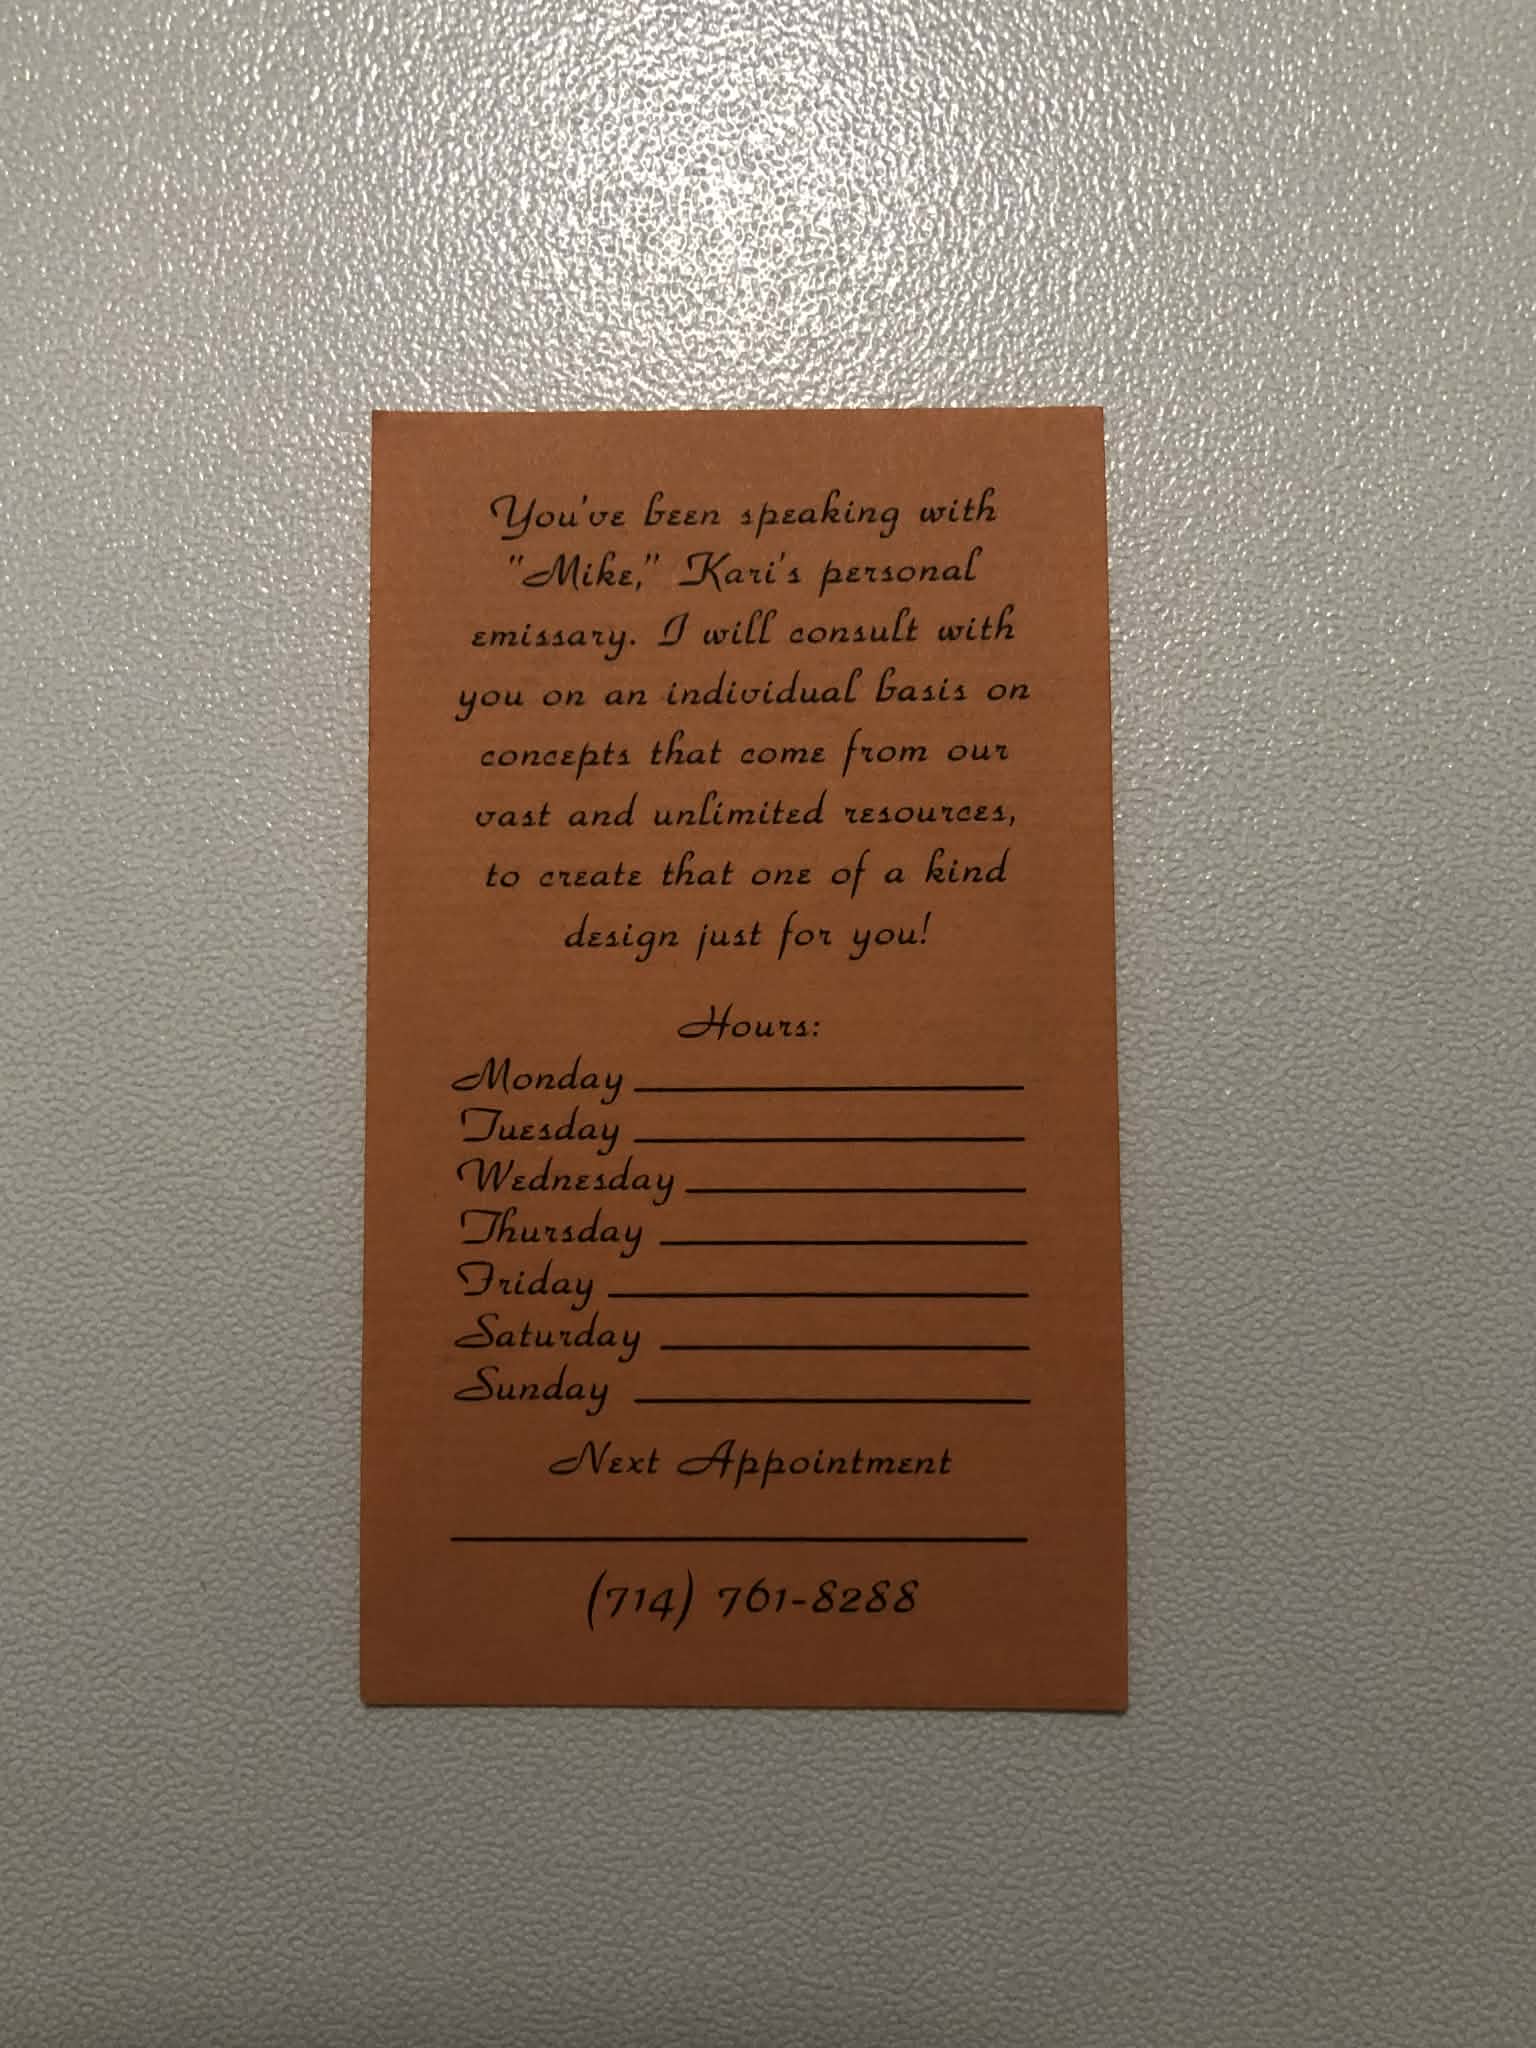 You've been speaking with
"Mike," Kari's personal
emissary. I will consult with
you on an individual basis on
concepts that come from our
vast and unlimited resources,
to create that one of a kind
design just for you!
Hours:
Monday
Tuesday
Wednesday
Thursday
Friday
Saturday
Sunday
Next Appointment
(714) 761-8288